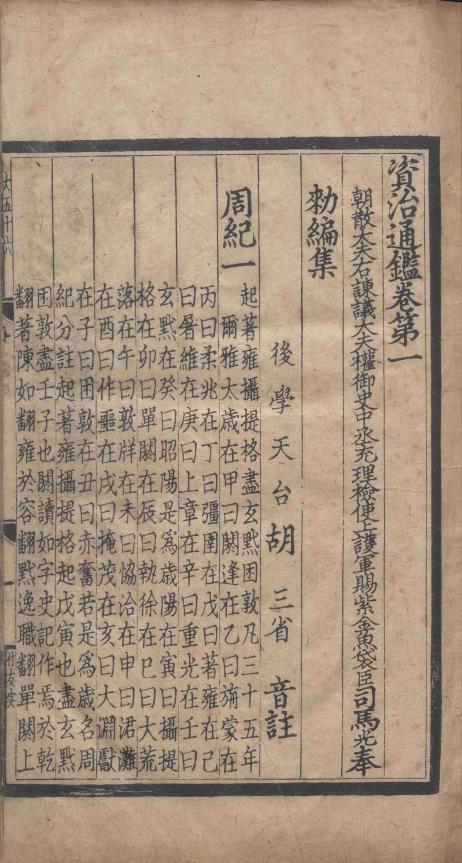 資治通鑑卷第一
朝散大夫右諫議大夫權御史中丞充理檢使上護軍賜紫金魚袋臣司馬光奉
勑編集
後學天台胡三省音註
周紀一
起著雍攝提格盡玄黓困敦凡三十五年
爾雅太歲在甲曰閼逢在乙曰旃蒙在
丙曰柔兆在丁曰彊圉在戊曰著雍在己
曰屠維在庚曰上章在辛曰重光在壬曰
玄黓在癸曰昭陽是爲歲陽在寅曰攝提
格在卯曰單閼在辰曰執徐在巳曰大荒
落在午曰敦牂在未曰協洽在申曰涒灘
在酉曰作噩在戌曰掩茂在亥曰大淵獻
在子曰困敦在丑曰赤奮若是爲歲名周
紀分註起著雍攝提格起戊寅也盡玄黓
困敦盡壬子也閼讀如字史記作焉於乾
翻著陳如翻雍於容翻黓逸職翻單閼上